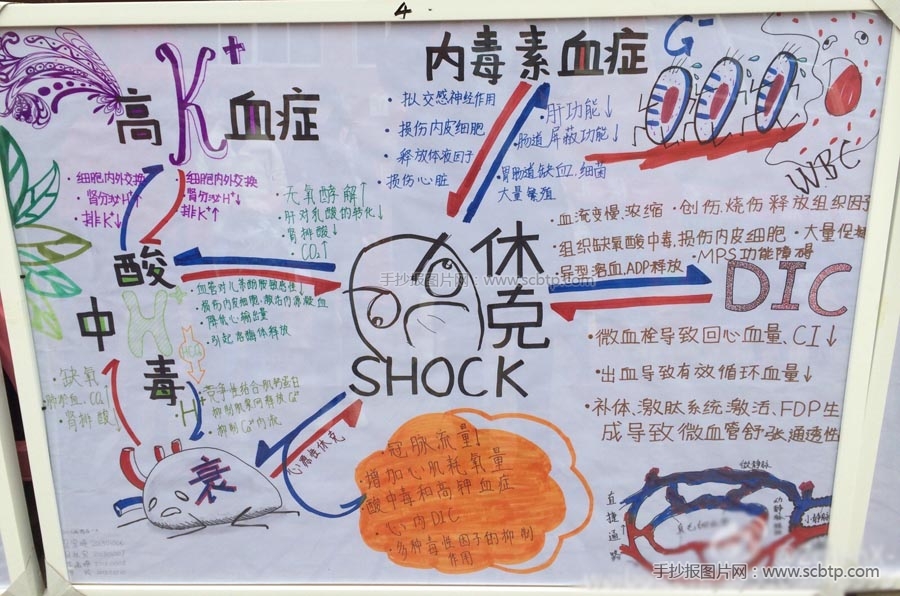 4
高K⁺血症
· 细胞内外交换
· 肾分泌H⁺↓
· 排K⁺↓
· 细胞内外交换
· 肾分泌H⁺↑
· 排K⁺↑
内毒素血症
G⁻
· 拟交感神经作用
· 损伤内皮细胞
· 释放体液因子
· 损伤心脏
· 肝功能↓
· 肠道屏蔽功能↓
· 胃肠道缺血、细菌
大量繁殖
WBC
无氧酵解↑
· 肝对乳酸的转化↓
· 肾排酸↓
· CO₂↑
酸
中
毒
H⁺
· 血管对儿茶酚胺敏感性↓
· 损伤内皮细胞、激活内源凝血
· 降低心输出量
· 引起溶酶体释放
休克
SHOCK
手抄报图片网:www.scbtp.com
· 血流变慢、浓缩
· 创伤、烧伤释放组织因子
· 组织缺氧酸中毒、损伤内皮细胞
· 大量促
· 异型溶血、ADP释放
· MPS功能障碍
DIC
· 微血栓导致回心血量、CI↓
· 出血导致有效循环血量↓
· 补体、激肽系统激活、FDP生
成导致微血管舒张通透性
· 缺氧
CO₂↑
· 肾排酸↓
H⁺
竞争性结合肌钙蛋白
抑制
抑制Ca²⁺内流
衰
心源性休克
· 冠脉流量↓
· 增加心肌耗氧量
· 酸中毒和高钾血症
· 心内DIC
· 多种毒性因子的抑制
作用
微静脉
直捷通路
小静脉
手抄报图片网:www.scbtp.com